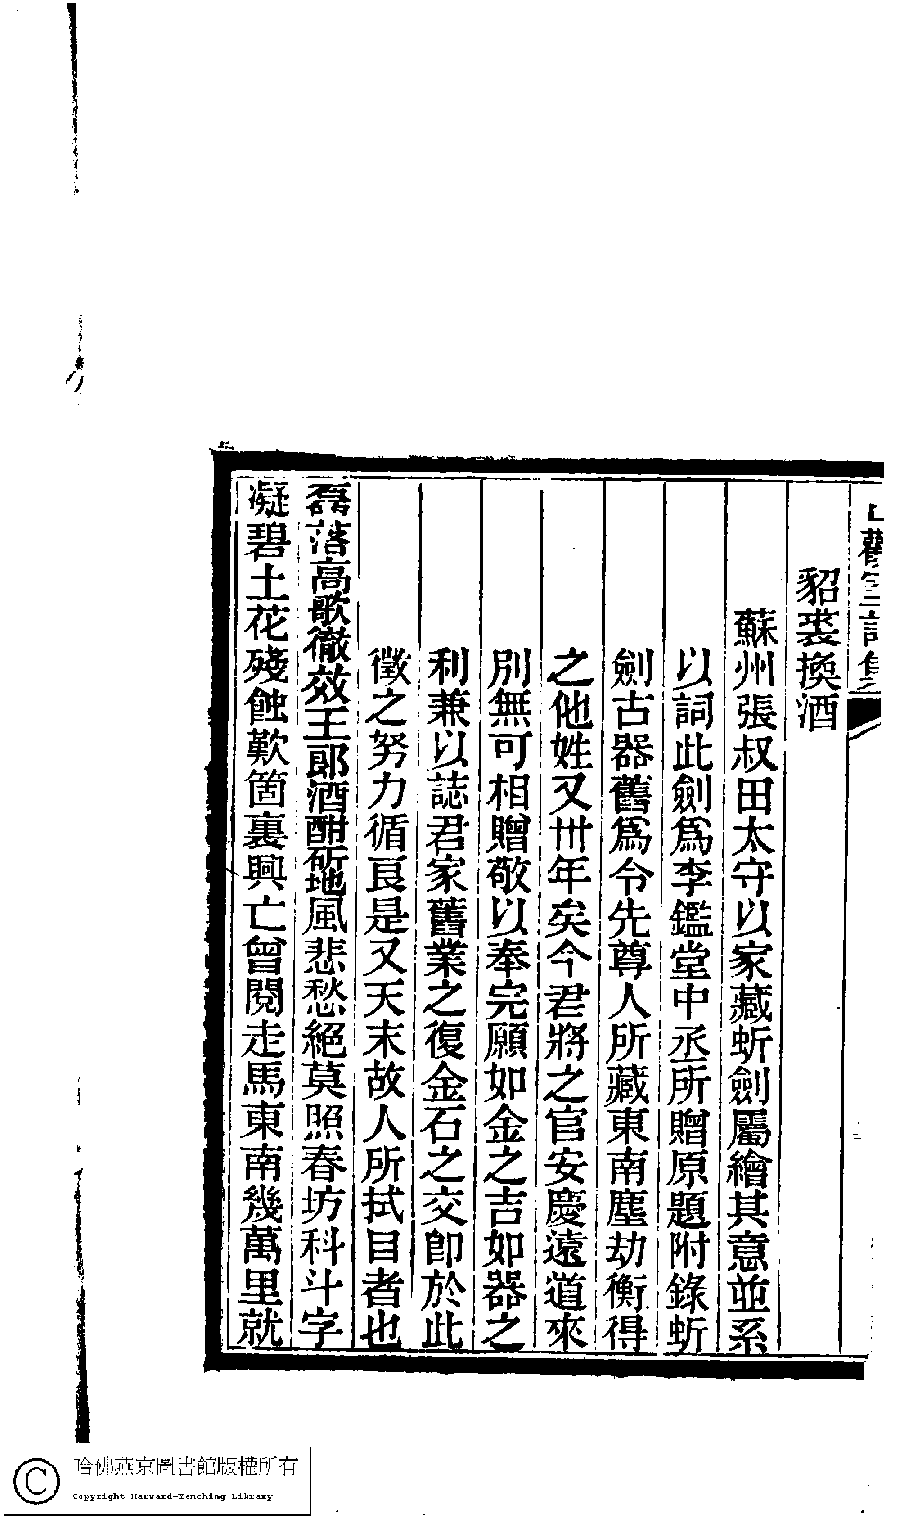 貂裘換酒
蘇州張叔田太守以家藏蚚劍屬繪其意並系
以詞此劍爲李鑑堂中丞所贈原題附錄蚚
劍古器舊爲令先尊人所藏東南塵劫衡得
之他姓又卅年矣今君將之官安慶遠道來
別無可相贈敬以奉完願如金之吉如器之
利兼以誌君家舊業之復金石之交卽於此
徵之努力循良是又天末故人所拭目者也
磊落高歌徹效王郞酒酣斫地風悲愁絕莫照春坊科斗字
凝碧土花殘蝕歎箇裏興亡曾閱走馬東南幾萬里就
哈佛燕京圖書館版權所有
Copyright Harvard-Yenching Library